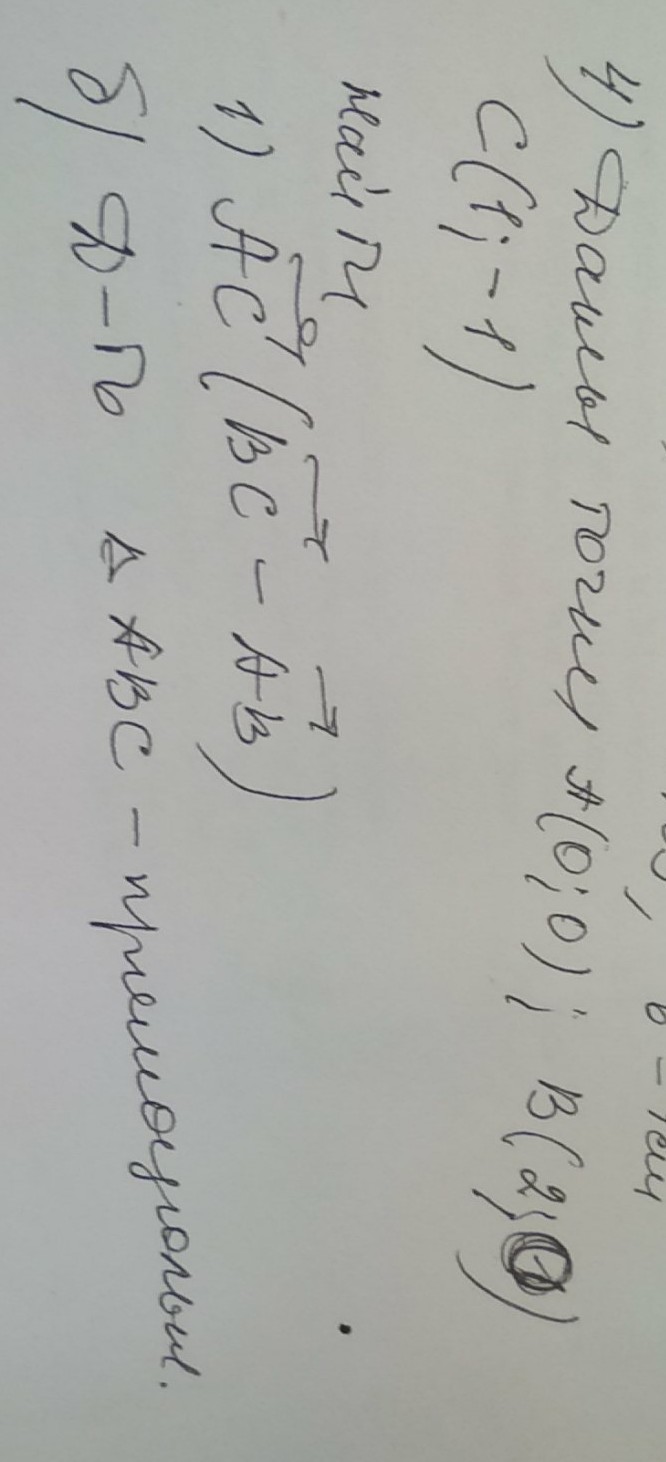 4) Даны точки A(0; 0); B(2; 0)
C(1; -1)
найти
1) AC (BC - AB)
б) Д-ть △ABC - прямоугольн.